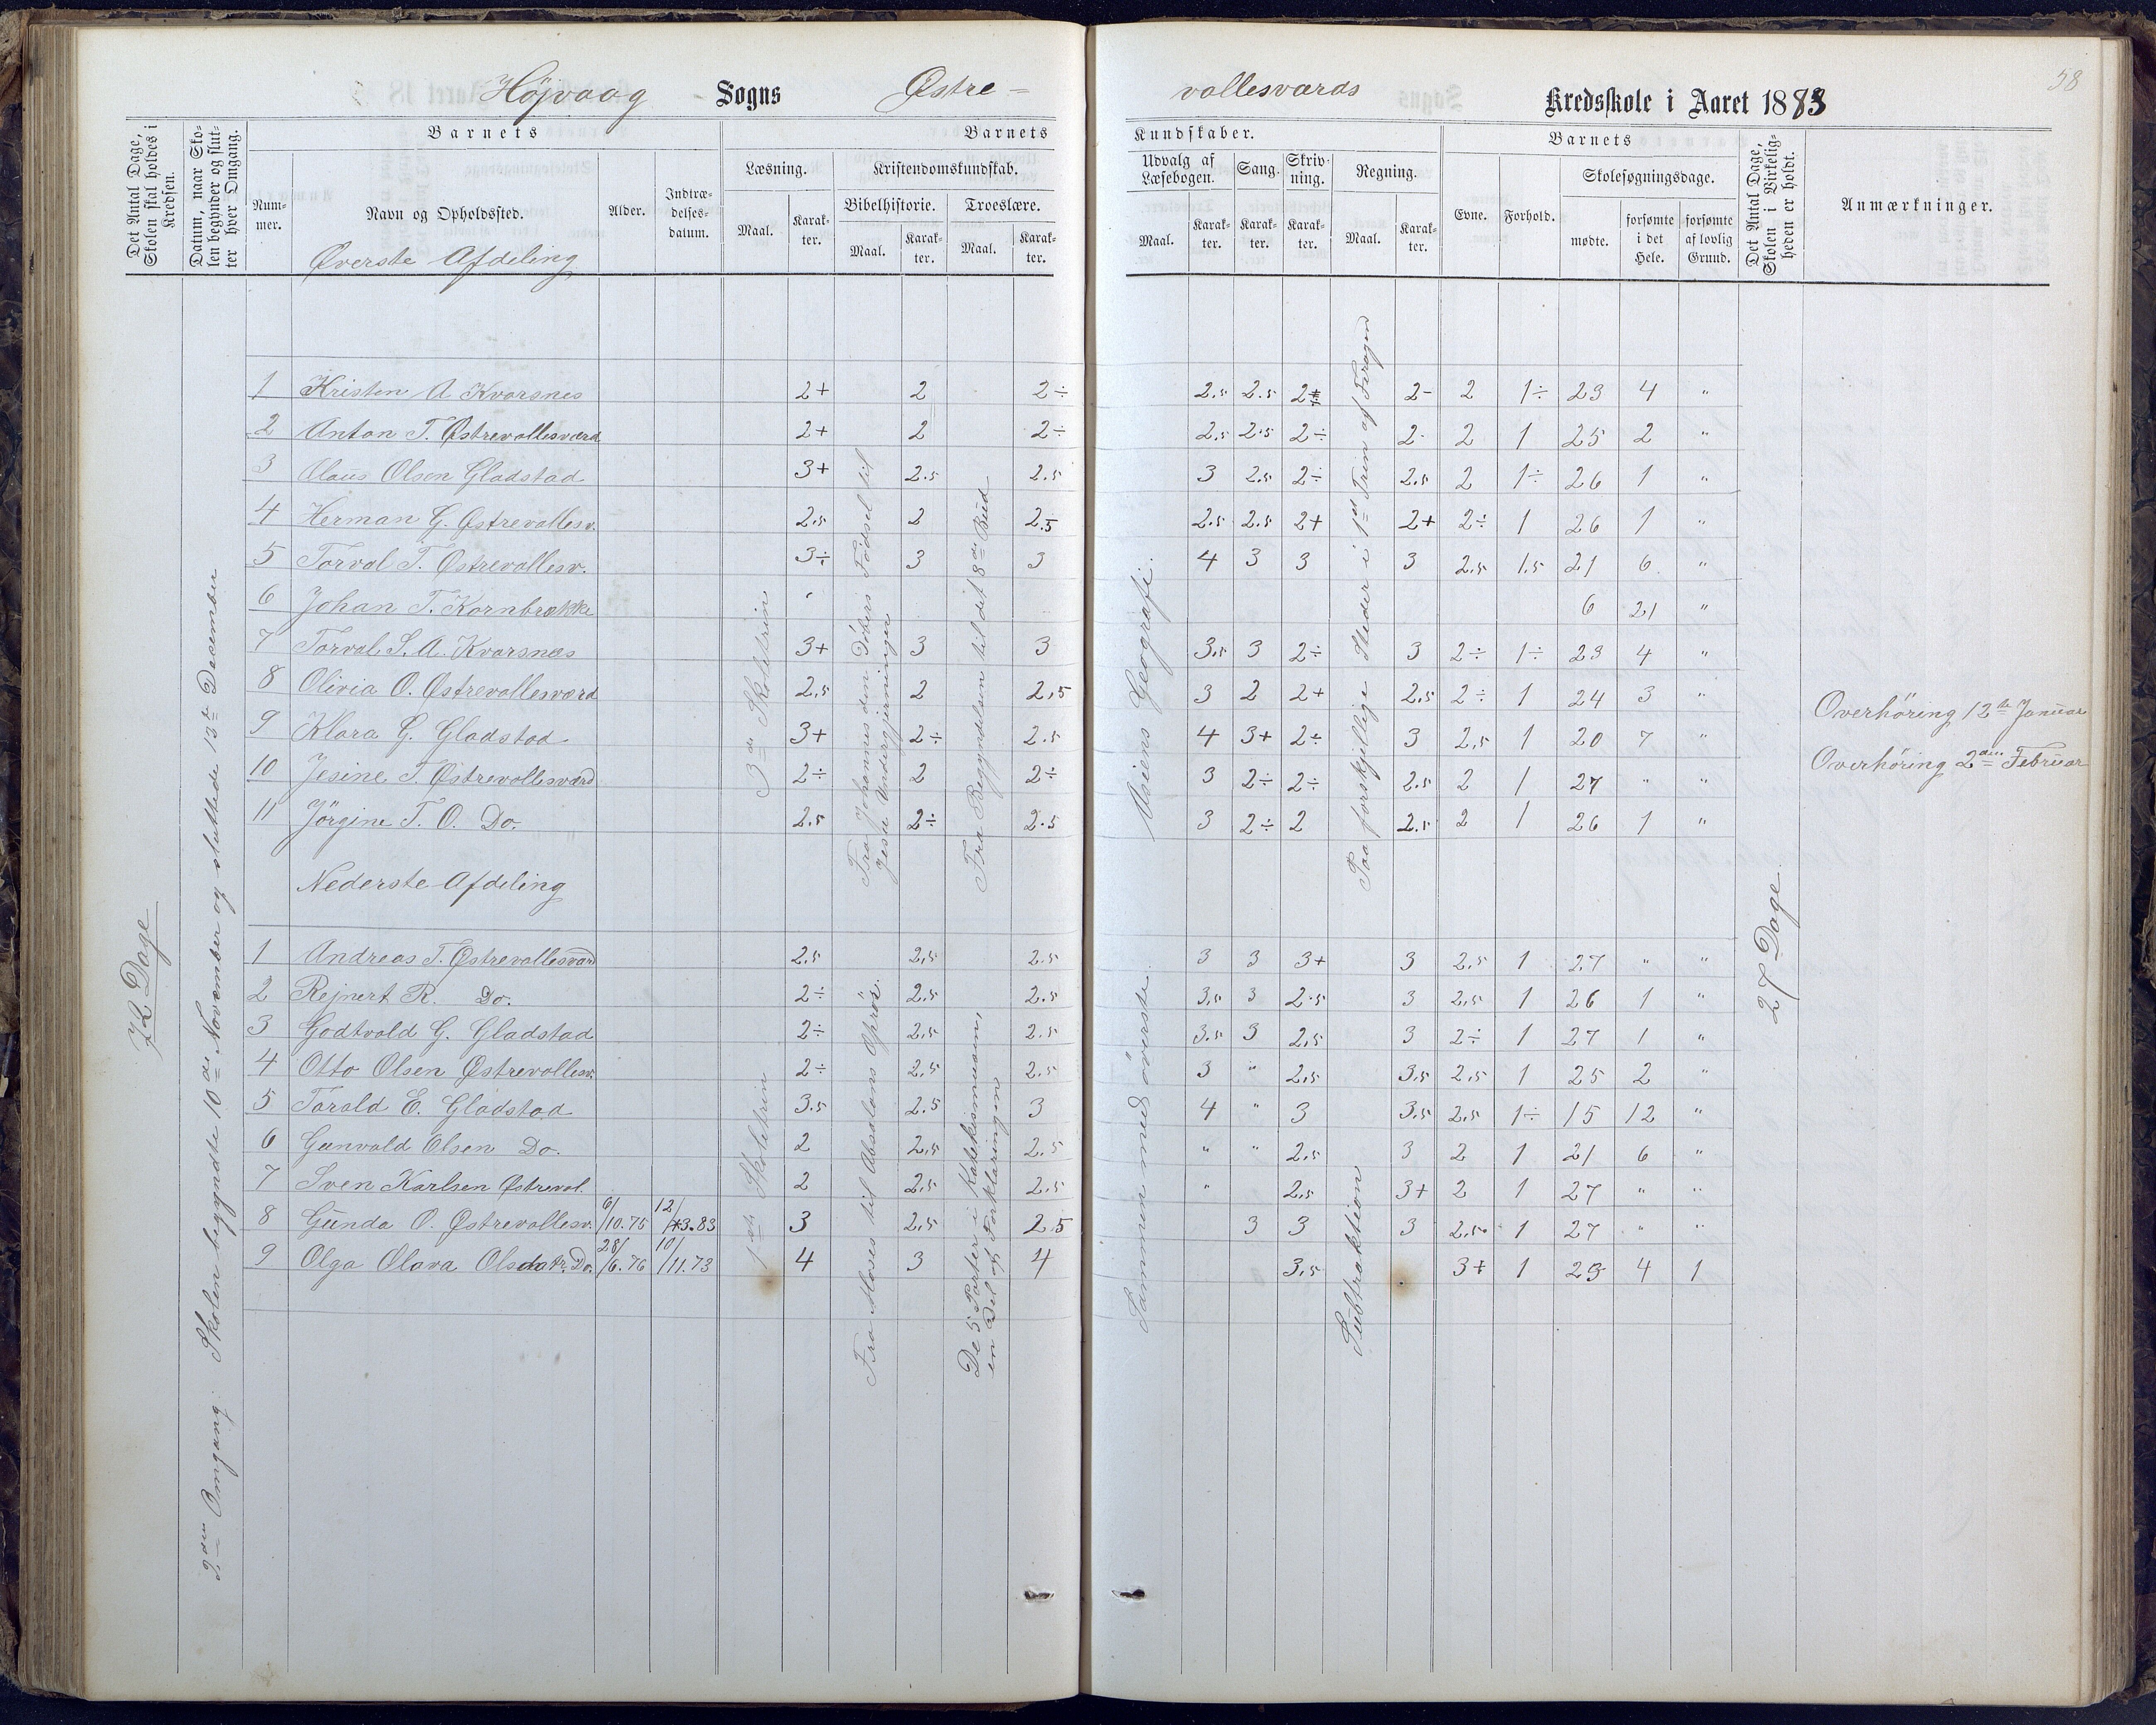 58
Höjvaag Sogns Østre-
vallesværds Kredsskole i Aaret 1883
Det Antal Dage, Skolen skal holdes i Kredsen.
Datum, naar Skolen begynder og slutter hver Omgang.
Barnets
Nummer.
Navn og Opholdssted.
Øverste Afdeling
Alder.
Indtrædelsesdatum.
Barnets
Læsning.
Maal.
Karakter.
Kristendomskundskab.
Bibelhistorie.
Maal.
Karakter.
Troeslære.
Maal.
Karakter.
Kundskaber.
Udvalg af Læsebogen.
Maal.
Karakter.
Sang.
Karakter.
Skrivning.
Karakter.
Regning.
Maal.
Karakter.
Barnets
Evne.
Forhold.
Skolesøgningsdage.
mødte.
forsømte i det Hele.
forsømte af lovlig Grund.
Det Antal Dage, Skolen i Virkeligheden er holdt.
Anmærkninger.
1 Kristen A Kvarsnes 2+ 2 2÷ 2.5 2.5 2÷ 2- 2 1÷ 23 4 "
2 Anton T. Østrevallesværd 2+ 2 2÷ 2.5 2.5 2÷ 2- 2 1 25 2 "
3 Claus Olsen Gladstad 3+ 2.5 2.5 3 2.5 2÷ 2.5 2 1÷ 26 1 "
4 Herman G. Østrevallesv. 2.5 2 2.5 2.5 2.5 2+ 2+ 2÷ 1 26 1 "
5 Torval T. Østrevallesv. 3÷ 3 3 4 3 3 3 2.5 1.5 21 6 "
6 Johan T. Kornbrække 6 21 "
7 Torval S. A. Kvarsnes 3+ 3 3 3.5 3 2÷ 3 2÷ 1÷ 23 4 "
8 Olivia O. Østrevallesværd 2.5 2 2.5 3 2 2+ 2.5 2÷ 1 24 3 "
9 Klara G. Gladstad 3+ 2÷ 2.5 4 3+ 2÷ 3 2.5 1 20 7 "
10 Jesine T. Østrevallesværd 2÷ 2 2÷ 3 2÷ 2÷ 2.5 2 1 27 " "
11 Jörgine T. O. Do. 2.5 2÷ 2.5 3 2÷ 2 2.5 2 1 26 1 "
Nederste Afdeling
1 Andreas T. Østrevallesværd 2.5 2.5 2.5 3 3 3+ 3 2.5 1 27 " "
2 Rejnert R. Do. 2÷ 2.5 2.5 3.5 3 2.5 3 2.5 1 26 1 "
3 Godtvald G. Gladstad 2÷ 2.5 2.5 3.5 3 2.5 3 2÷ 1 27 1 "
4 Otto Olsen Østrevallesv. 2÷ 2.5 2.5 3 " 2.5 3.5 2.5 1 25 2 "
5 Torald E. Gladstad 3.5 2.5 3 4 " 3 3.5 2.5 1÷ 15 12 "
6 Gunvald Olsen Do. 2 2.5 2.5 " " 2.5 3 2 1 21 6 "
7 Sven Karlsen Østreval. 2 2.5 2.5 " 2.5 3+ 2 1 27 " "
8 Gunda O. Østrevallesv. 6/10.75 12/3.83 3 2.5 2.5 3 3 3 2.5 1 27 " "
9 Olga Olava Olsdatr. Do. 28/6.76 10/11.73 4 3 4 3.5 3+ 1 23 4 1
72 Dage
2den Omgang. Skolen begyndte 10de November og sluttede 13de December
3de Skoletrin
Fra Johannes den Döbers Födsel til
Jesu Undergjerninger
Fra Begyndelsen til det 8de Bud
Asiens Geografi.
Paa forskjellige Steder i 1ste Trin af
1ste Skoletrin
Fra Moses til Absalons Oprör.
De 5 Parter i Katekismusen,
en Del af Forklaringen
Sammen med överste
Subtraktion
27 Dage
Overhöring 12te Januar
Overhöring 2den Februar